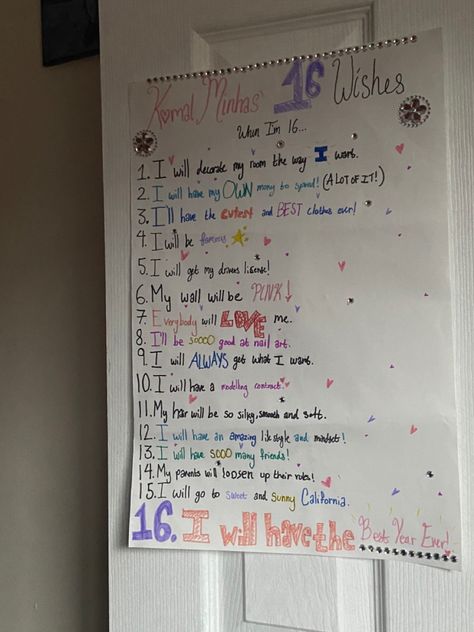 Komal Minhas' 16 Wishes
When I'm 16...
1. I will decorate my room the way I want.
2. I will have my OWN mony to spend! (A LOT OF IT!)
3. I'll have the cutest and BEST clothes ever!
4. I will be famous
5. I will get my drivers license!
6. My wall will be PINK!
7. Everybody will LOVE me.
8. I'll be soooo good at nail art.
9. I will ALWAYS get what I want.
10. I will have a modelling contract.
11. My hair will be so silky, smooth and soft.
12. I will have an amazing lifestyle and mindset!
13. I will have SOOO many friends!
14. My parents will loosen up their rules!
15. I will go to sweet and sunny California.
16. I will have the Best Year Ever!